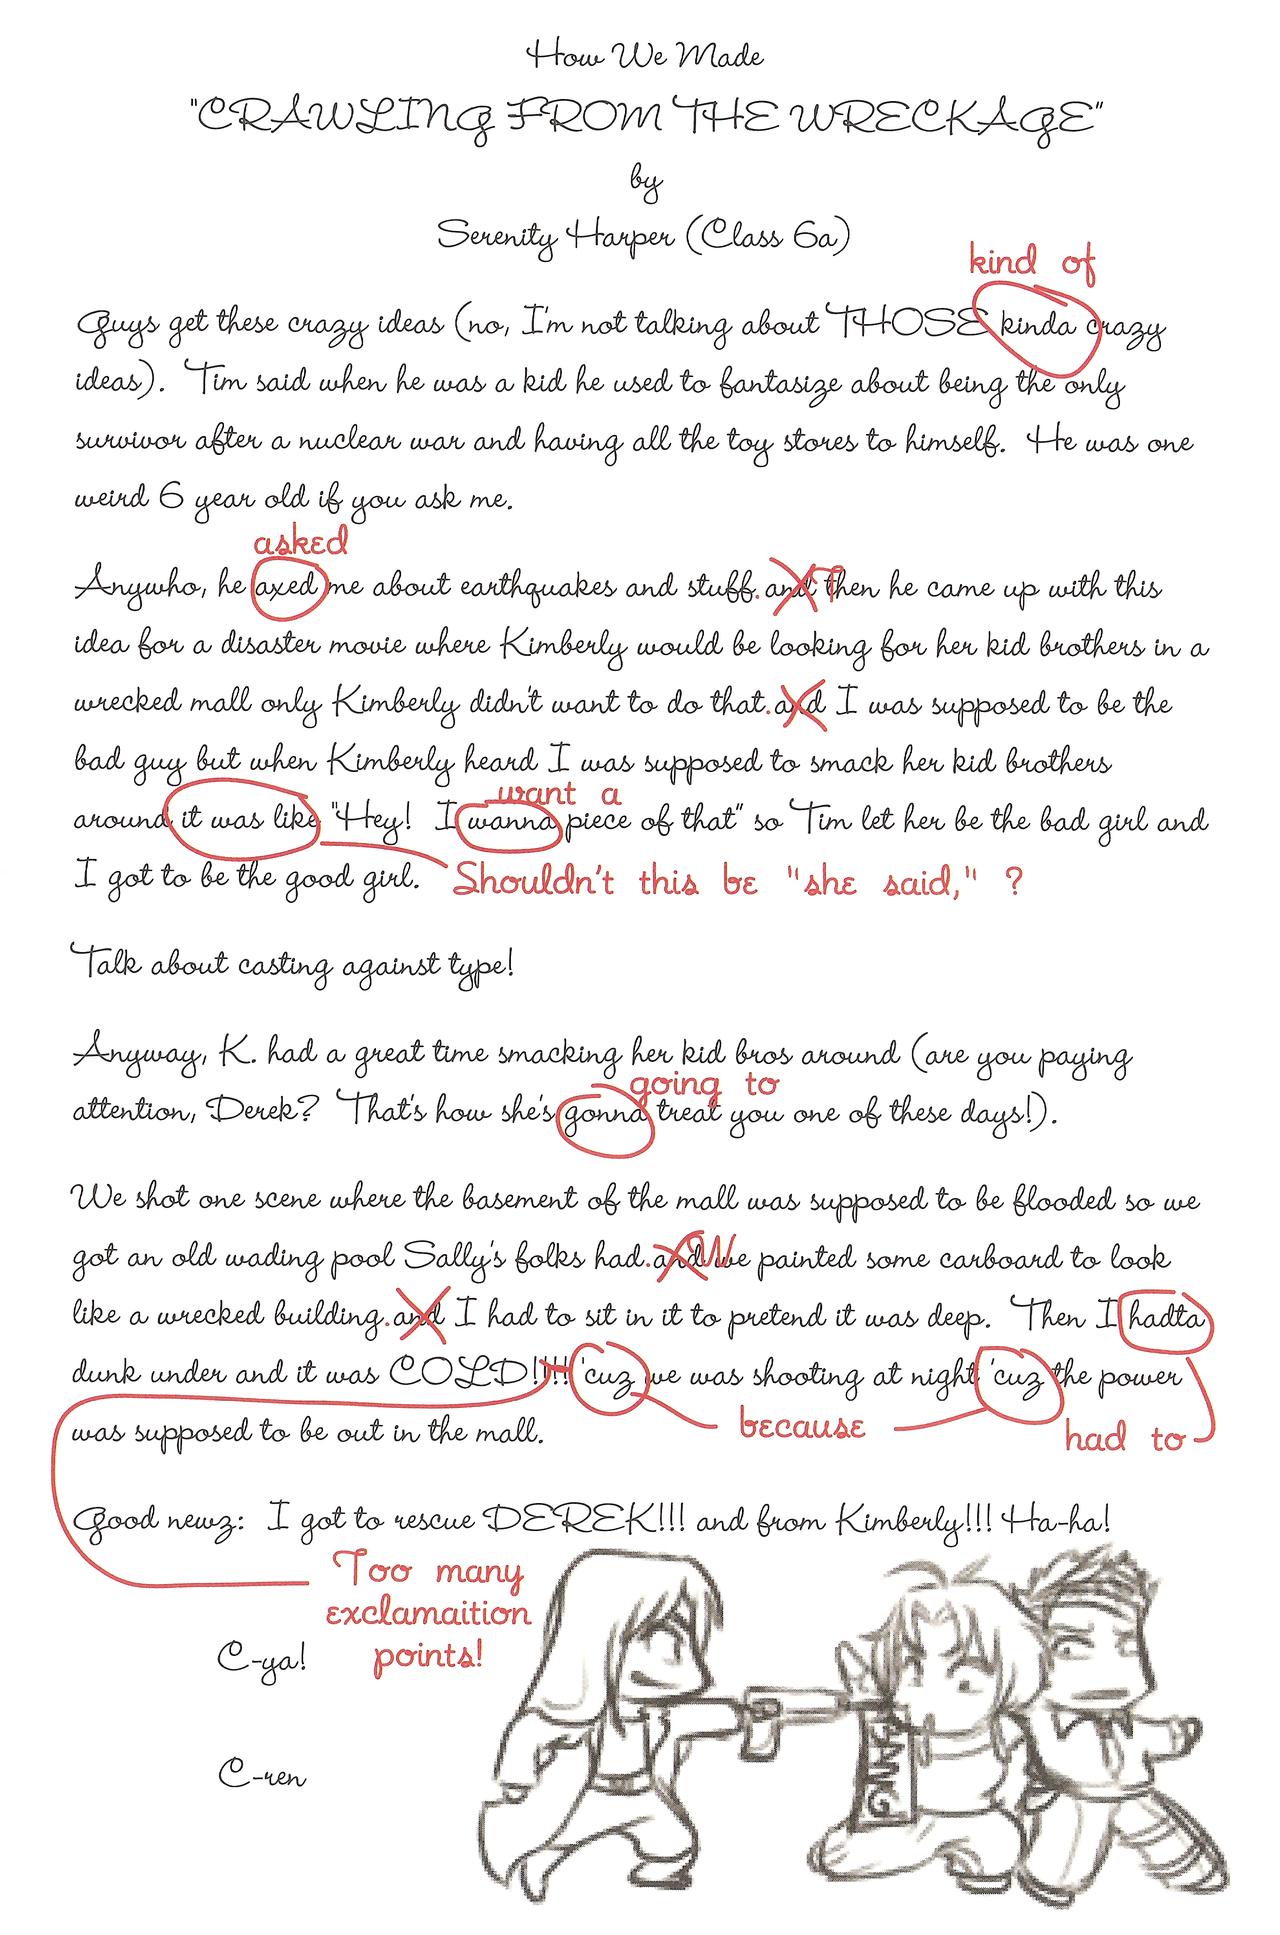 How We Made
"CRAWLING FROM THE WRECKAGE"
by
Serenity Harper (Class 6a)
kind of
Guys get these crazy ideas (no, I'm not talking about THOSE kinda crazy
ideas). Tim said when he was a kid he used to fantasize about being the only
survivor after a nuclear war and having all the toy stores to himself. He was one
weird 6 year old if you ask me.
asked
Anywho, he axed me about earthquakes and stuff. and T then he came up with this
idea for a disaster movie where Kimberly would be looking for her kid brothers in a
wrecked mall only Kimberly didn't want to do that. and I was supposed to be the
bad guy but when Kimberly heard I was supposed to smack her kid brothers
want a
around it was like "Hey! I wanna piece of that" so Tim let her be the bad girl and
I got to be the good girl. Shouldn't this be "she said," ?
Talk about casting against type!
Anyway, K. had a great time smacking her kid bros around (are you paying
going to
attention, Derek? That's how she's gonna treat you one of these days!).
We shot one scene where the basement of the mall was supposed to be flooded so we
got an old wading pool Sally's folks had. and W we painted some carboard to look
like a wrecked building. and I had to sit in it to pretend it was deep. Then I hadta
dunk under and it was COLD!!!! 'cuz we was shooting at night 'cuz the power
because
had to
was supposed to be out in the mall.
Good newz: I got to rescue DEREK!!! and from Kimberly!!! Ha-ha!
Too many
exclamaition
points!
C-ya!
BANG
C-ren